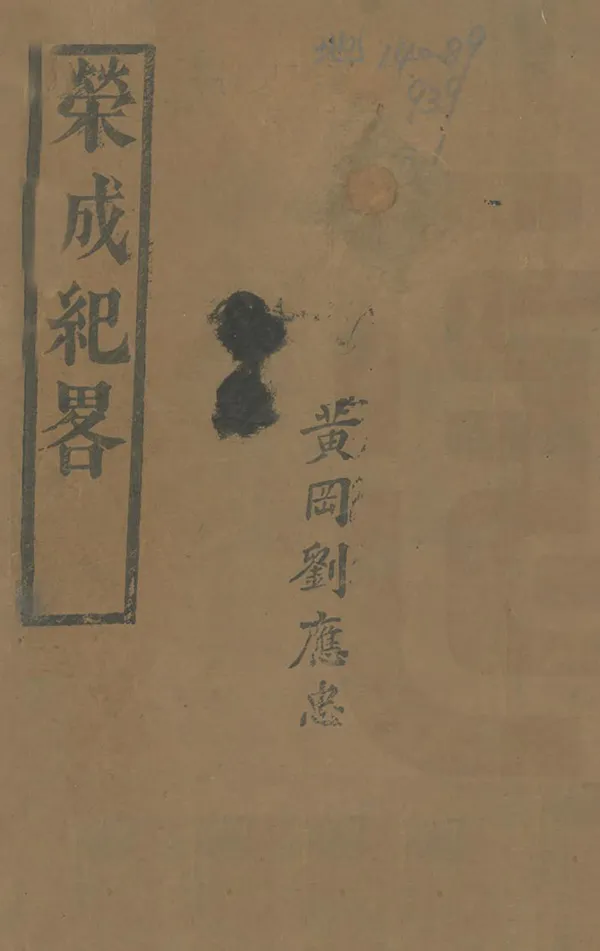 榮成紀畧
黃岡劉應忠
140-89
939